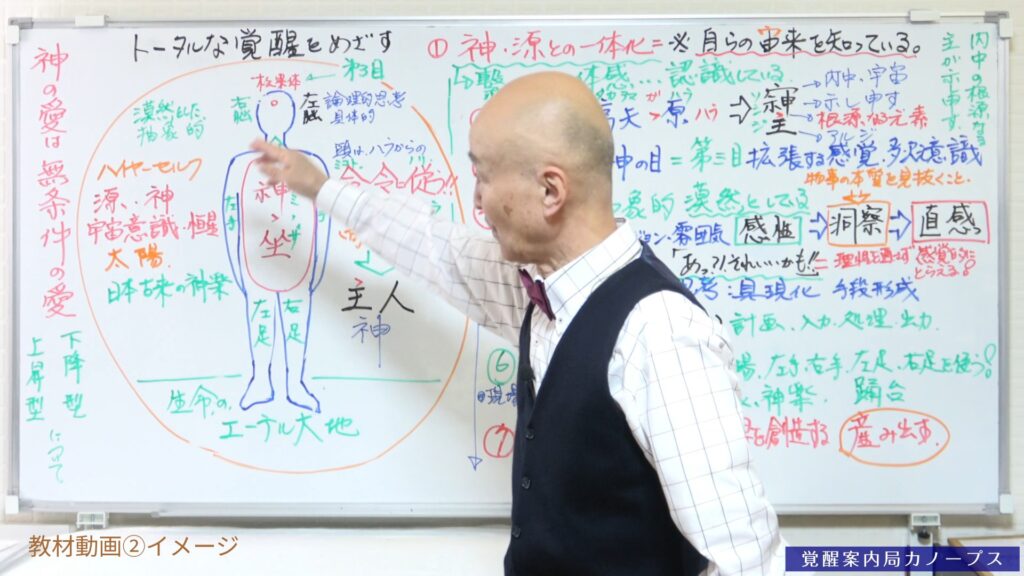 トータルな覚醒をめざす
神の愛は無条件の愛
下降型
上昇型
について
松果体
第3の目
右脳
左脳
漠然とした
抽象的
論理的思考
具体的
ハイヤーセルフ
源、神
宇宙意識・恒星
太陽
日本古来の神楽
頭は、ハラからの
命令に従う!!
神
坐
左手
左足
右足
主人
神
生命の
エーテル大地
① 神・源との一体化=※自らの宙来を知っている。
一体感…認識している
ハラ
神
主
内中、宇宙
示し申す
根源なる元素
アルジ
内中の根源なる
主が示申す
中の目=第三目
拡張する感覚、多次元意識
物事の本質を見抜くこと。
抽象的漠然としてる
雰囲気
感性
洞察
直感
「あっ?!それいいかも!!」=理性を通さず感覚的にとらえる
思考・具現化
手段形成
計画、入力、処理、出力
左手、右手、左足、右足を使う
神楽、踊台
⑥
現場
⑦
を創造する
産み出す。
教材動画②イメージ
覚醒案内局カノープス